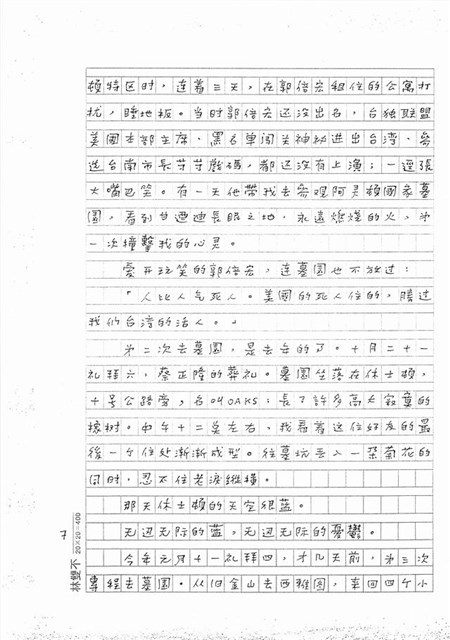 頓特区时，连着三天，在郭倍宏租住的公寓打
扰，睡地板。当时郭倍宏还没出名，台独联盟
美國本部主席、黑名单闯关神秘进出台湾、參
选台南市長等等戲碼，都还没有上演；一逕張
大嘴巴笑。有一天他帶我去參观阿灵頓國家墓
園，看到甘迺迪長眠之地．永遠燃燒的火，才
一次撞擊我的心灵。
爱开玩笑的郭倍宏，连墓園也不放过：
「人比人气死人。美國的死人住的，勝过
我们台湾的活人。」
第二次去墓園，是去年的了。十月二十一
礼拜六，蔡正隆的葬礼。墓園坐落在休士頓，
十号公路旁，名叫OAKS：長了許多高大寂寞的
橡树。中午十二奌左右，我看着这位好友的最
後一个住处渐渐成型。往墓坑丟入一朵菊花的
同时，忍不住老淚縱橫。
那天休士頓的天空很蓝。
无边无际的蓝，无边无际的憂鬱。
今年元月十一礼拜四，才几天前，第三次
專程去墓園。从旧金山去西雅圖，来回四个小
7
20×20＝400
林雙不